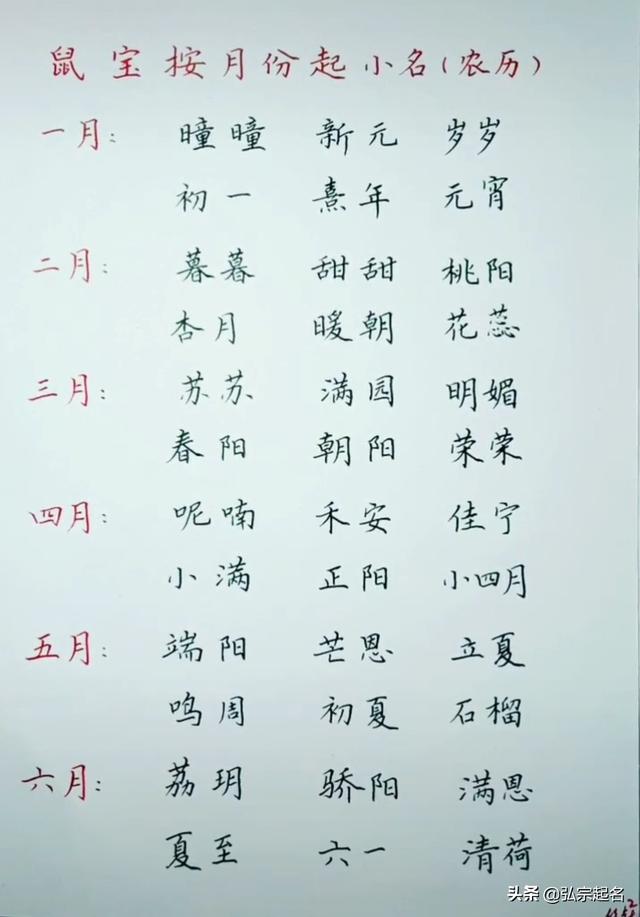 鼠宝按月份起小名(农历)
一月: 曈曈 新元 岁岁
初一 熹年 元宵
二月: 暮暮 甜甜 桃阳
杏月 暖朝 花蕊
三月: 苏苏 满园 明媚
春阳 朝阳 荣荣
四月: 呢喃 禾安 佳宁
小满 正阳 小四月
五月: 端阳 芒恩 立夏
鸣周 初夏 石榴
六月: 荔玥 骄阳 满恩
夏至 六一 清荷
头条 @弘宗起名